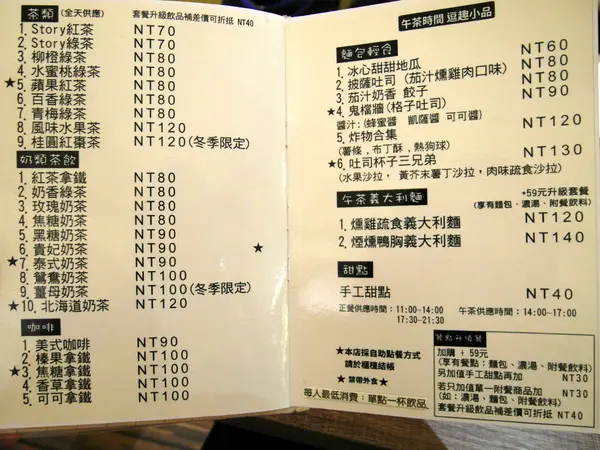 茶類 (全天供應) 套餐升級飲品補差價可折抵 NT40
1. Story紅茶 NT70
2. Story綠茶 NT70
3. 柳橙綠茶 NT80
4. 水蜜桃綠茶 NT80
★5. 蘋果紅茶 NT80
6. 百香綠茶 NT80
7. 青梅綠茶 NT80
8. 風味水果茶 NT120
9. 桂圓紅棗茶 NT120(冬季限定)
奶類茶飲
1. 紅茶拿鐵 NT80
2. 奶香綠茶 NT80
3. 玫瑰奶茶 NT80
4. 焦糖奶茶 NT80
5. 黑糖奶茶 NT90
6. 貴妃奶茶 NT90 ★
★7. 泰式奶茶 NT90
8. 鴛鴦奶茶 NT100
9. 薑母奶茶 NT100(冬季限定)
★10. 北海道奶茶 NT120
咖啡
1. 美式咖啡 NT90
2. 榛果拿鐵 NT100
★3. 焦糖拿鐵 NT100
4. 香草拿鐵 NT100
5. 可可拿鐵 NT100
午茶時間 逗趣小品
麵包輕食
1. 冰心甜甜地瓜 NT60
2. 披薩吐司 (茄汁燻雞肉口味) NT80
3. 茄汁奶香 餃子 NT80
★4. 鬼檔牆(格子吐司) NT90
醬汁:(蜂蜜醬 凱薩醬 可可醬)
5. 炸物合集 NT120
(薯條,布丁酥,熱狗球)
★6. 吐司杯子三兄弟 NT130
(水果沙拉, 黃芥末薯丁沙拉,肉味疏食沙拉)
午茶義大利麵 +59元升級套餐
(享有麵包、濃湯、附餐飲料)
1. 燻雞疏食義大利麵 NT120
2. 煙燻鴨胸義大利麵 NT140
甜點
手工甜點 NT40
正餐供應時間:11:00~14:00 午茶供應時間:14:00~17:00
17:30~21:30
★本店採自助點餐方式
請於櫃檯結帳
★ 禁帶外食★
每人最低消費:單點一杯飲品
加購 + 59元
(享有餐點:麵包、濃湯、附餐飲料)
另加值手工甜點再加 NT30
若只加值單一附餐商品加 NT30
(如:濃湯、麵包、附餐飲料)
套餐升級飲品補差價可折抵 NT40